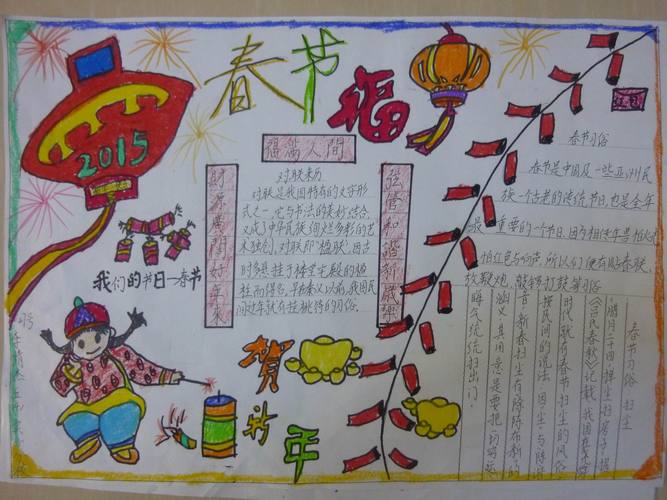 春节
福
2015
福满人间
财源广開好年来
对联来历
对联是我国特有的文字形
式之一,它与书法的美妙结合,
又成了中华民族绚烂多彩的艺
术独创。对联即"楹联",因古
时多悬挂于楼堂宅殿的楹
柱而得名。
我们的节日—春节
贺
新
年
春节习俗
春节是中国及一些亚洲民
族一个古老的传统节日,也是全年
最重要的一个节日,因为相传年兽怕火
怕红色与响声,所以人们便有贴春联、
放鞭炮、敲锣打鼓等习俗
春节习俗 扫尘
《吕氏春秋》记载,我国在尧舜
时代就有春节扫尘的风俗。
按民间的说法:因"尘"与"陈"谐
音,新春扫尘有"除陈布新"的
涵义,其用意是要把一切
晦气统统扫出门。